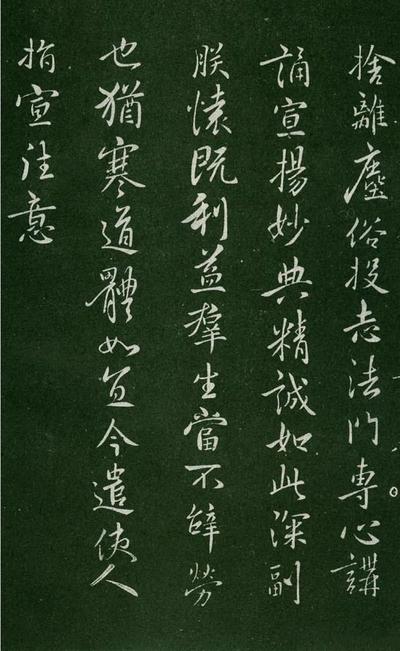 捨離塵俗投志法門專心講
誦宣揚妙典精誠如此深副
朕懷既利益羣生當不辭勞
也猶寒道體如宜今遣使人
指宣往意